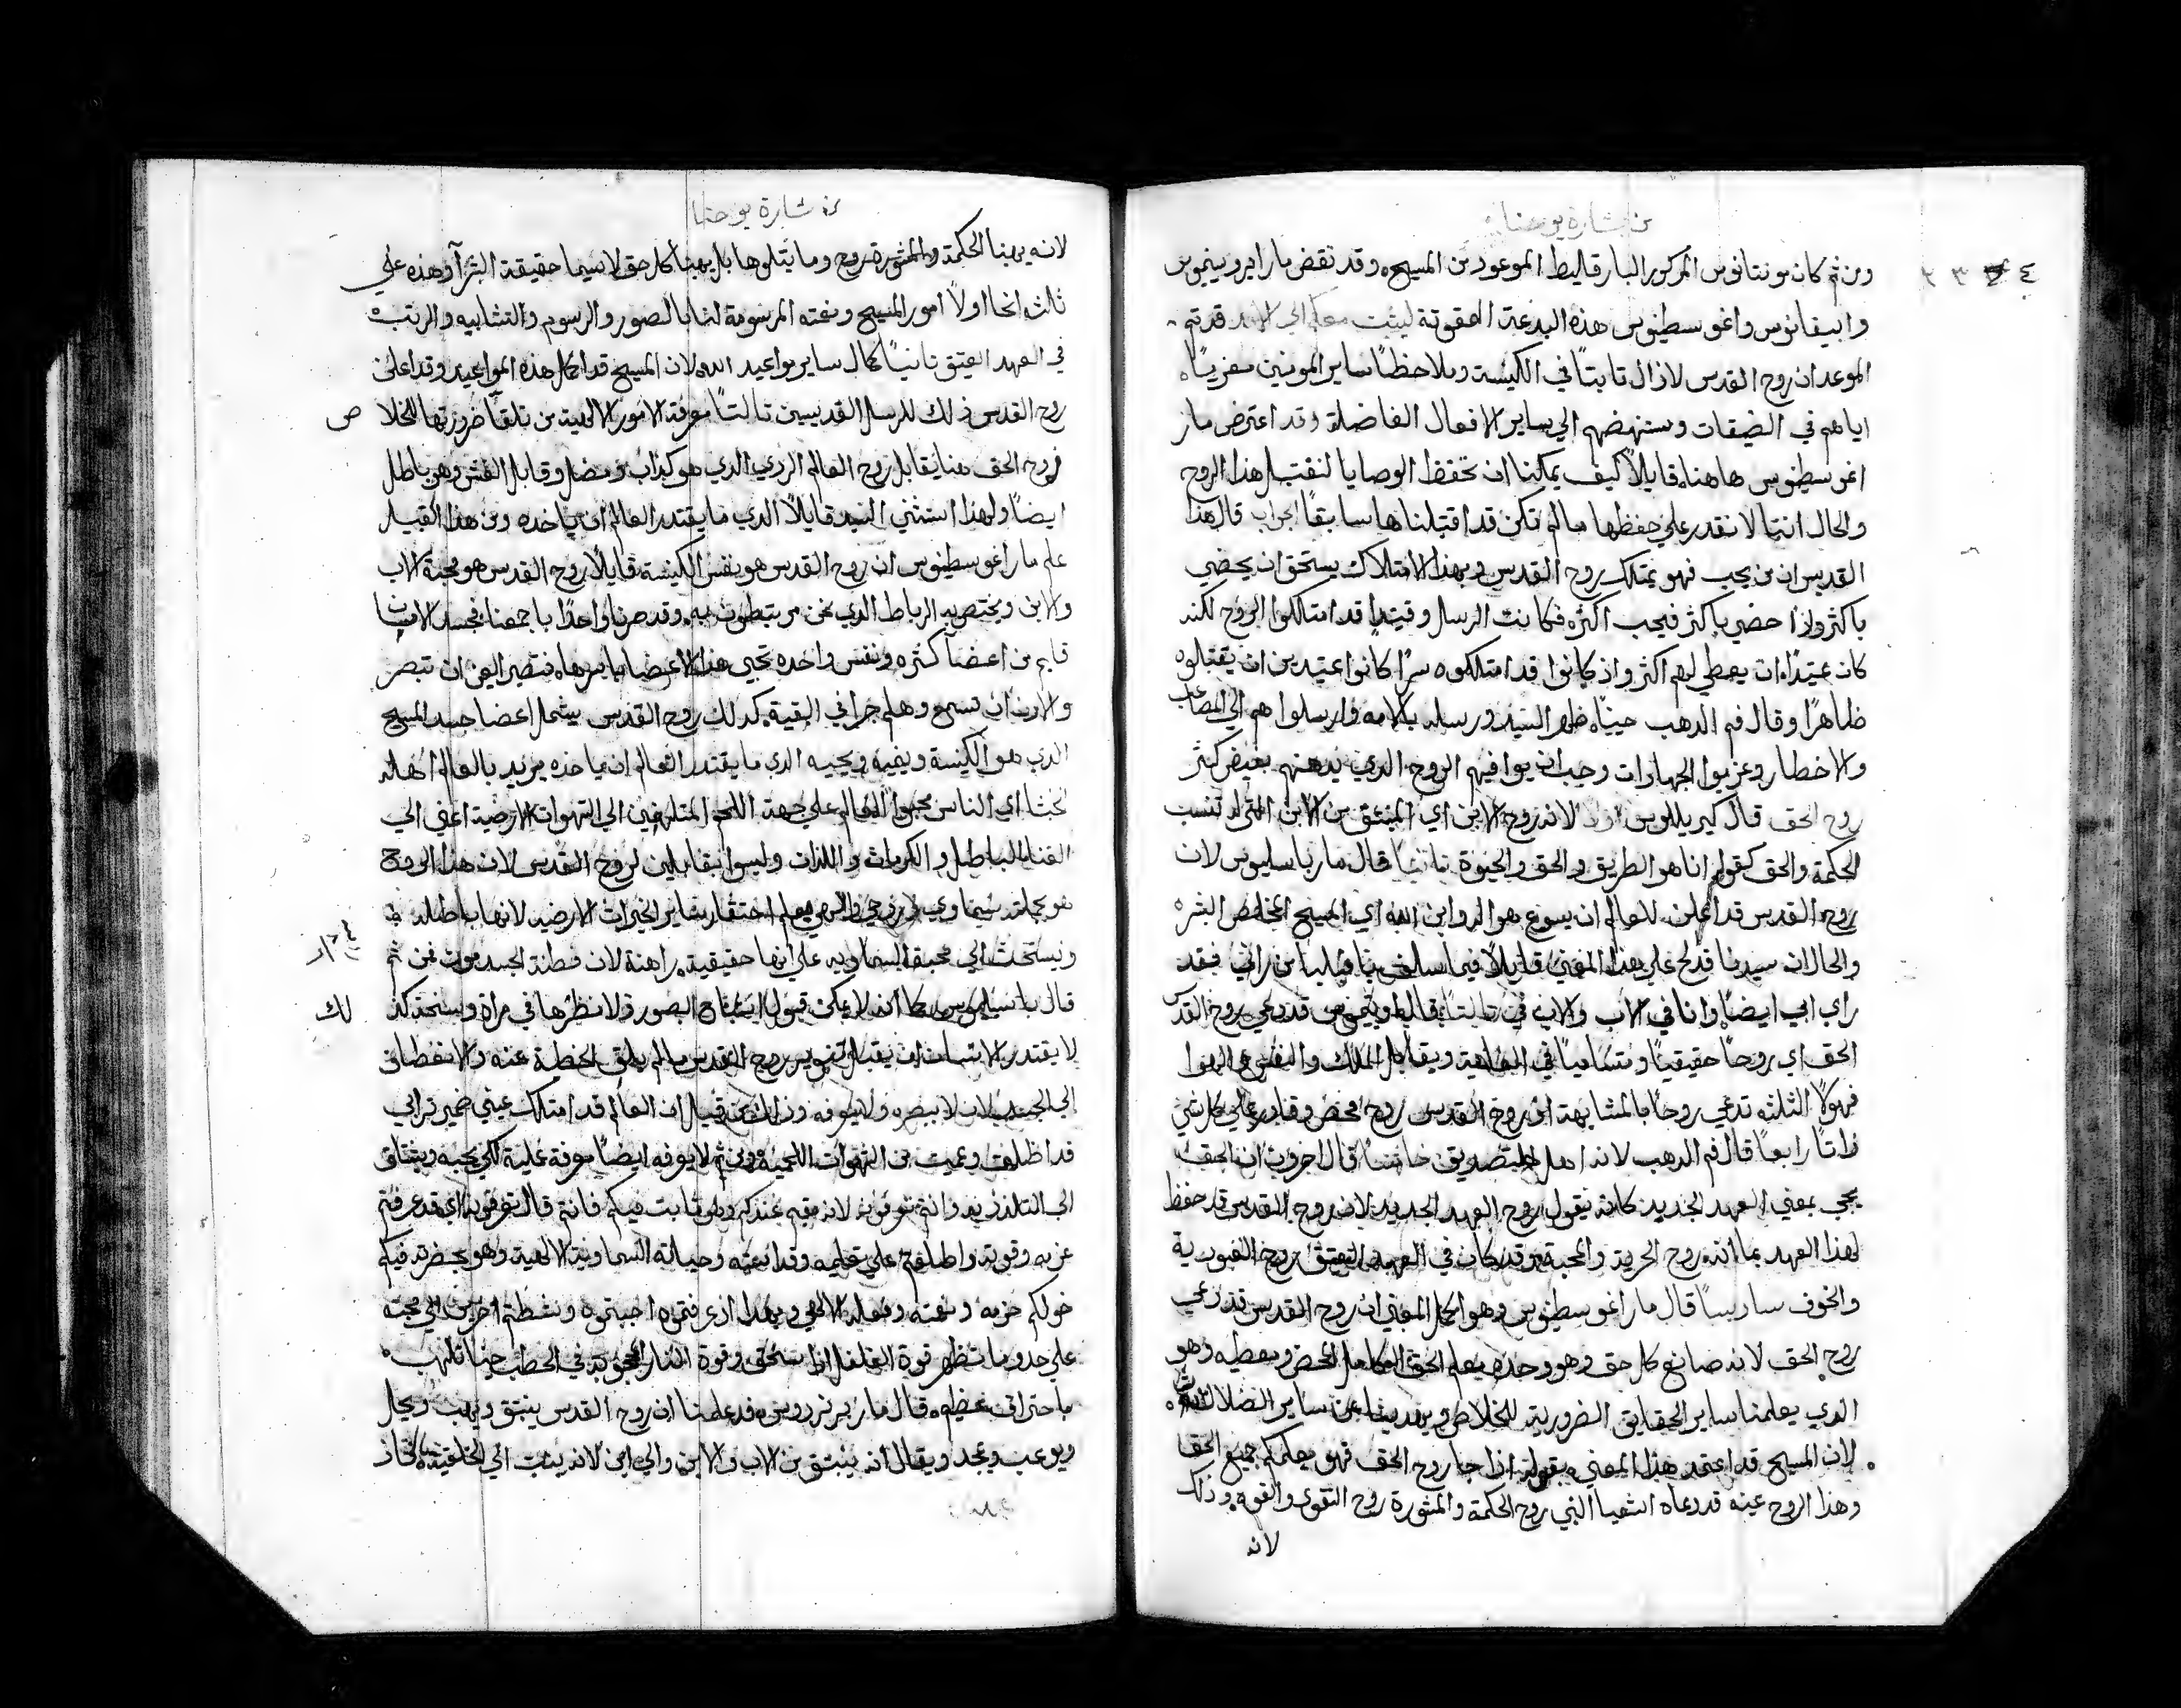 من بشارة يوحنا
٤ ٣ ٣
ومن ثم كان مونتانوس المذكور البارقاليط الموعود من المسيح. وقد نقض مار ايرونيموس
وابيفانوس واغوسطينوس هذه البدعة الممقوتة ليثبت معكم الي الابد
الموعد ان روح القدس لازال ثابتًا في الكنيسة وملاحظًا ساير المومنين معزيًا
اياهم في الضيقات ومنهضهم الي ساير الافعال الفاضلة وقد اعترض مار
اغوسطينوس هاهنا قايلاً كيف يمكننا ان نحفظ الوصايا لنقبل هذا الروح
والحال اننا لا نقدر علي حفظها ما لم نكن قد اقتبلناها سابقًا اجاب قال هذا
القديس ان من يحب فهو يمتلك روح القدس وبهذا الامتلاك يستحق ان يحضي
باكثر واذا حضي باكثر فيحب اكثر فكانت الرسل وقيتيذٍ قد امتلكوا الروح لكنه
كان عتيدًا ان يعطي لهم اكثر واذ كانوا قد امتلكوه سرًا كانوا عتيدين ان يقتبلوه
ظاهرًا وقال فم الدهب حيناه ظهر السيد ورسله بالامه وارسلوا هم الي المصاعب
والاخطار وعزموا الجهادات وجب ان يوافيهم الروح الذي يدهنهم بفيض كثير
روح الحق قال كيريللوس اولاً لانه روح الابن اي المنبثق من الابن الذي له تنسب
الحكمة والحق كقوله انا هو الطريق والحق والحيوة ثانيًا قال مار باسيليوس لان
روح القدس قد اعلن للعالم ان يسوع هو الرب ابن الله اي المسيح المخلص البشر
والحال ان سيدنا قد لمح علي هذا المعني قايلاً فيما سلف يا فيلبس من راني فقد
راي ابي ايضًا وانا في الاب والاب في ثالثًا قال طوبيتوس قد دعي روح القدس
الحق اي روحًا حقيقيًا ومتساميًا في الفلاهة ويقابل الملاك والنفس والهوا
فهولا الثلثة تدعي روحًا بالمشابهة اما روح القدس روح محض وقادر علي كل شي
ذاتًا رابعًا قال فم الدهب لانه اهل للتصديق خامسًا قال اخرون ان الحق
يجي بمعني العهد الجديد كانه يقول روح العهد الجديد لان روح القدس قد حفظ
لهذا العهد بما انه روح الحرية والمحبة وقد كان في العهد العتيق روح العبودية
والخوف سادسًا قال مار اغوسطينوس وهو اكمل المعني ان روح القدس قد دعي
روح الحق لانه صانع كل حق وهو وحده يعلم الحق الكامل المحض ويعطيه وهو
الذي يعلمنا ساير الحقايق الضرورية للخلاص وينقدنا من ساير الضلالات
لان المسيح قد اعتمد هذا المعني بقوله اذا جا روح الحق فهو يعلمكم جميع الحق
وهذا الروح عينه قد دعاه اشعيا النبي روح الحكمة والمشورة روح التقوي والقوة وذلك
لانه
من بشارة يوحنا
لانه يهبنا الحكمة والمشورة روح وما يتلوها بل يهبنا كل حق لا سيما حقيقة
ثلثة انحا اولاً امور المسيح ونعمته المرسومة لنا بالصور والرسوم والتشابيه والرتب
في العهد العتيق ثانيًا كمال ساير مواعيد الله لان المسيح قد اكمل هذه المواعيد وقد اعلن
روح القدس ذلك للرسل القديسين ثالثًا معرفة الامور الالهية من تلقا ضرورتها للخلاص
فروح الحق هنا يقابل روح العالم الردي الذي هو كذاب ومضل وقابل الغش وهو باطل
ايضًا ولهذا استثني السيد قايلاً الذي ما يقتدر العالم ان ياخذه ومن هذا القبيل
علم مار اغوسطينوس ان روح القدس هو نفس الكنيسة قايلاً روح القدس هو محبة الاب
والابن ويختص به الرباط الذي نحن مرتبطون به وقد صرنا واحدًا باجمعنا فجسد الانسان
قايم من اعضا كثيره ونفس واحده تحيي هذه الاعضا باسرها فتصير العين ان تبصر
والاذن ان تسمع وهلم جرا في البقية كذلك روح القدس يشمل اعضا جسد المسيح
الذي هو الكنيسة وينميه ويحييه الذي ما يقتدر العالم ان ياخذه يريد بالعالم اهله
الخبثا اي الناس محبوا العالم علي جهة اللحم المتلهفين الي الشهوات الارضية اعني الي
الغنا الباطل والكرامات واللذات وليسوا بقابلين لروح القدس لان هذا الروح
هو بجملته سماوي روحي والهي يعلم احتقار ساير الخيرات الارضيه لانها باطله
ويستحث الي محبة السماويه علي انها حقيقية راهنة لان فطنة الجسد موت فمن ثم
قال باسيليوس كما انه لا يمكن قبول اشباح الصور ولا نظرها في مراة وسخة كذلك
لا يقتدر الانسان ان يقبل تنوير روح القدس ما لم يلق الخطية عنه والانعطاف
الي الجسد لانه لا يبصره ولا يعرفه وذلك من قبل ان العالم قد امتلك عيني ضمير ترابي
قد اظلمت وعميت من الشهوات اللحمية ومن ثم لا يعرفه ايضًا معرفة عملية لكي يحبه ويشتاق
الي التلذذ به وانتم تعرفونه لانه مقيم عندكم وهو ثابت فيكم فانه قال تعرفونه اي قد عرفتم
عزيه وقوته واطلعتم علي تعليمه وقداسته وحياته السماوية الالهية وهو بحضرته فيكم
خولكم حزمه ونعمته وفعله الالهي وبهذا اذ عرفتموه احببتموه ونشطتم اخرين الي محبته
علي حد ما تظهر قوة الفلفل اذا سحق وقوة النار المحجوبة في الحطب حينما تلتهب
باحتراق عظيم قال مار برنردوس قد علمنا ان روح القدس ينبثق ويهب ويحل
ويوعب ويمجد ويقال انه ينبثق من الاب والابن والي اين لانه ينبث الي الخليقة
ص
لك